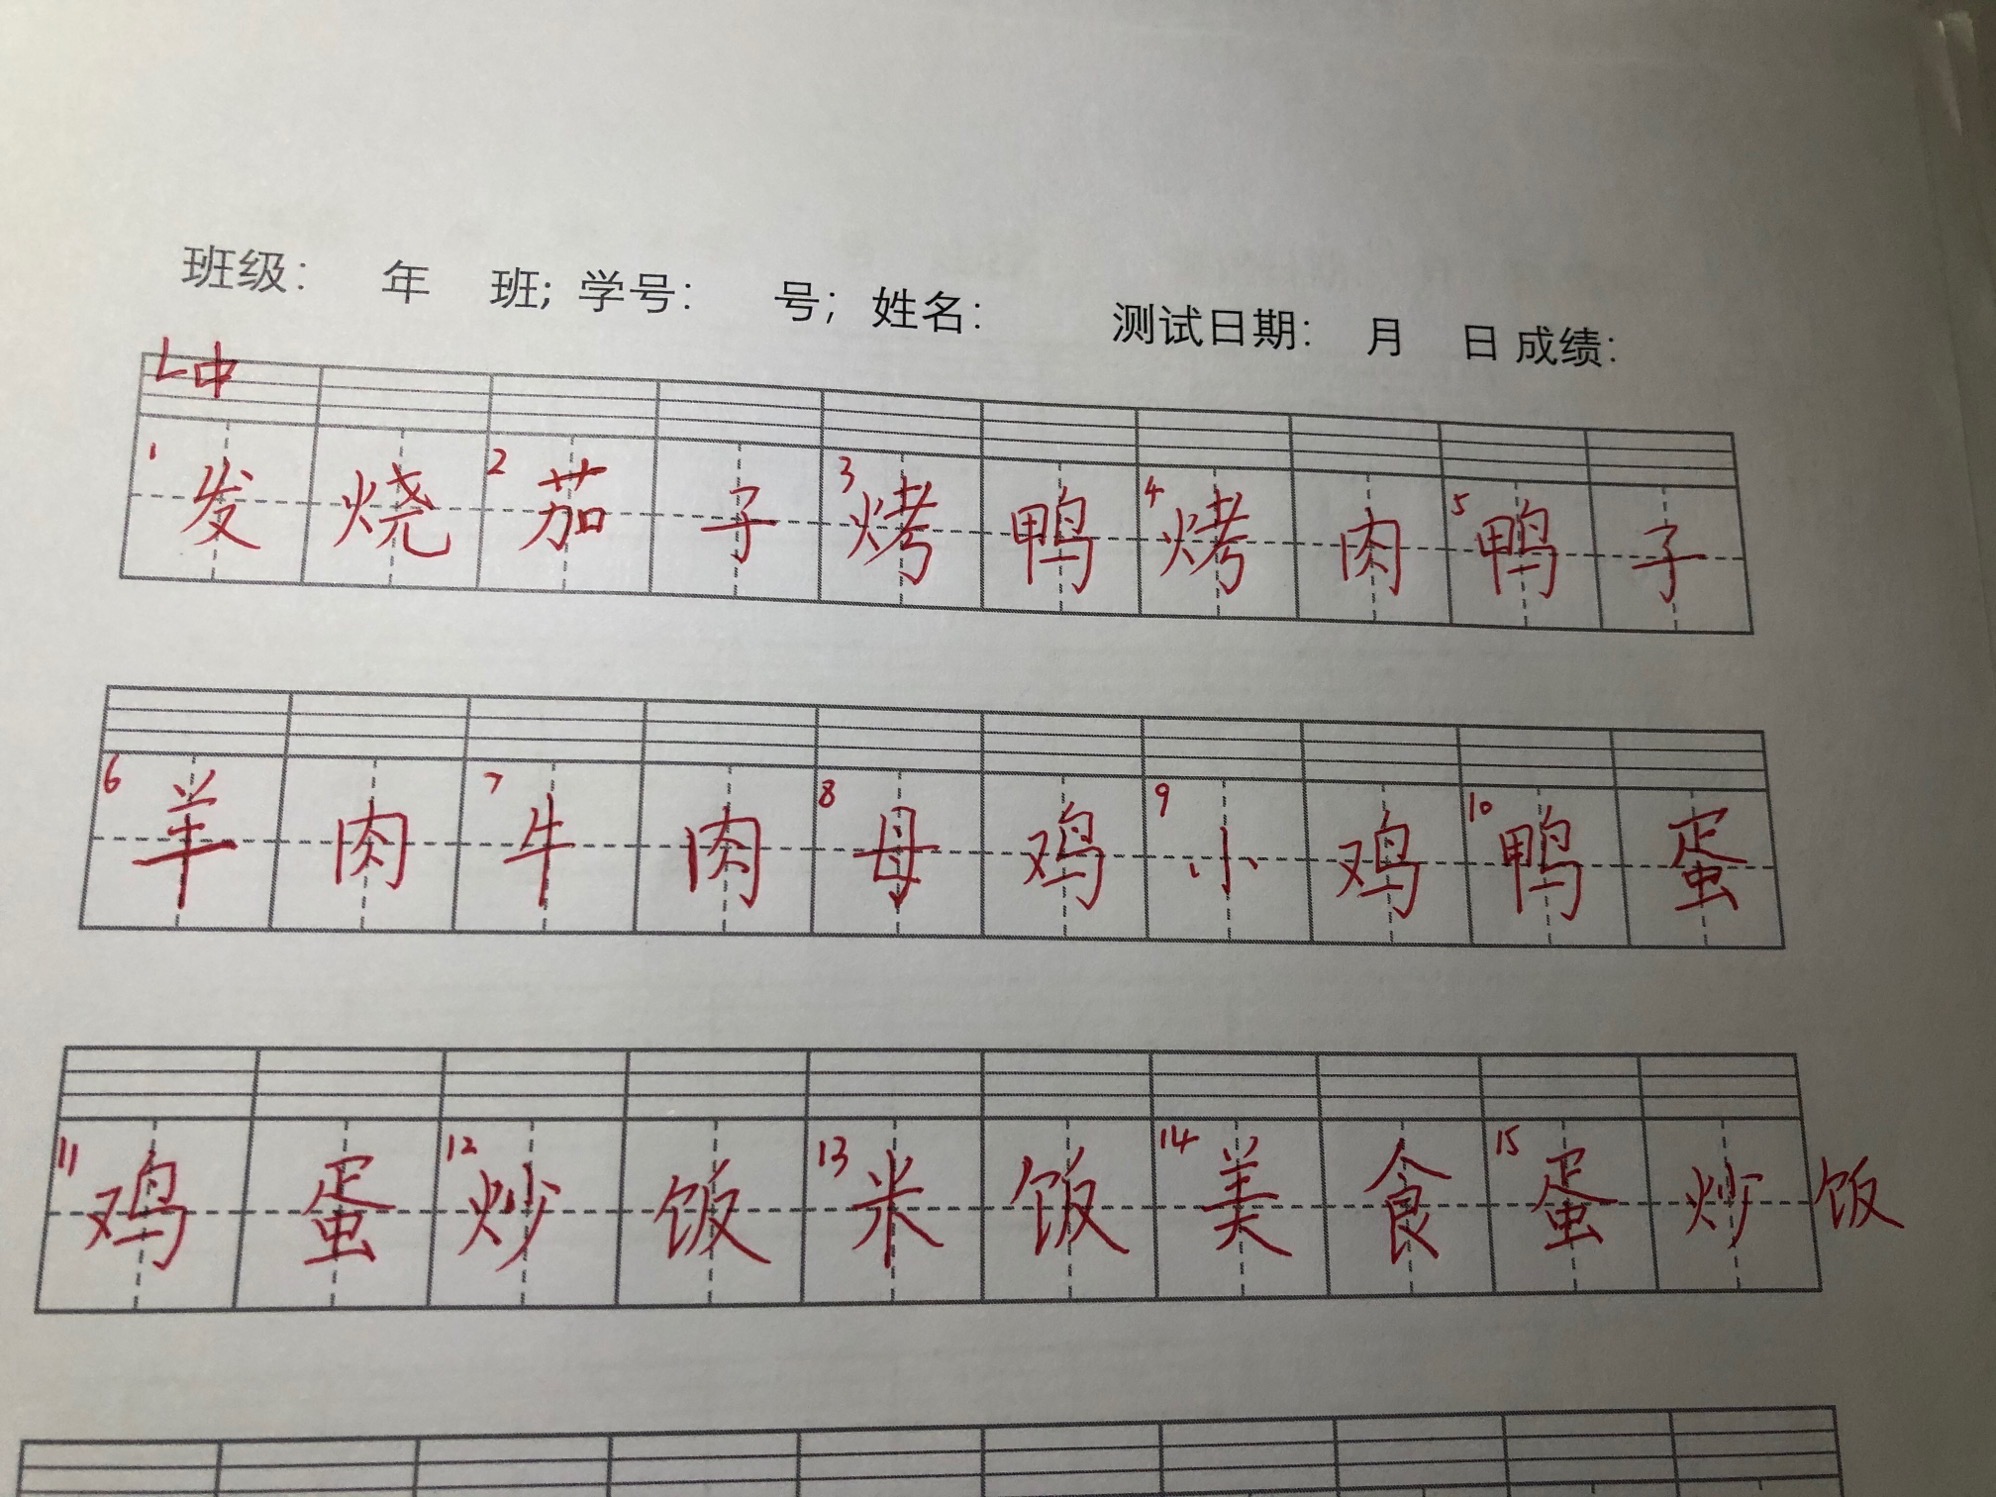 班级： 年 班；学号： 号；姓名： 测试日期： 月 日 成绩：
L中
1 发烧 2 茄子 3 烤鸭 4 烤肉 5 鸭子
6 羊肉 7 牛肉 8 母鸡 9 小鸡 10 鸭蛋
11 鸡蛋 12 炒饭 13 米饭 14 美食 15 蛋炒饭